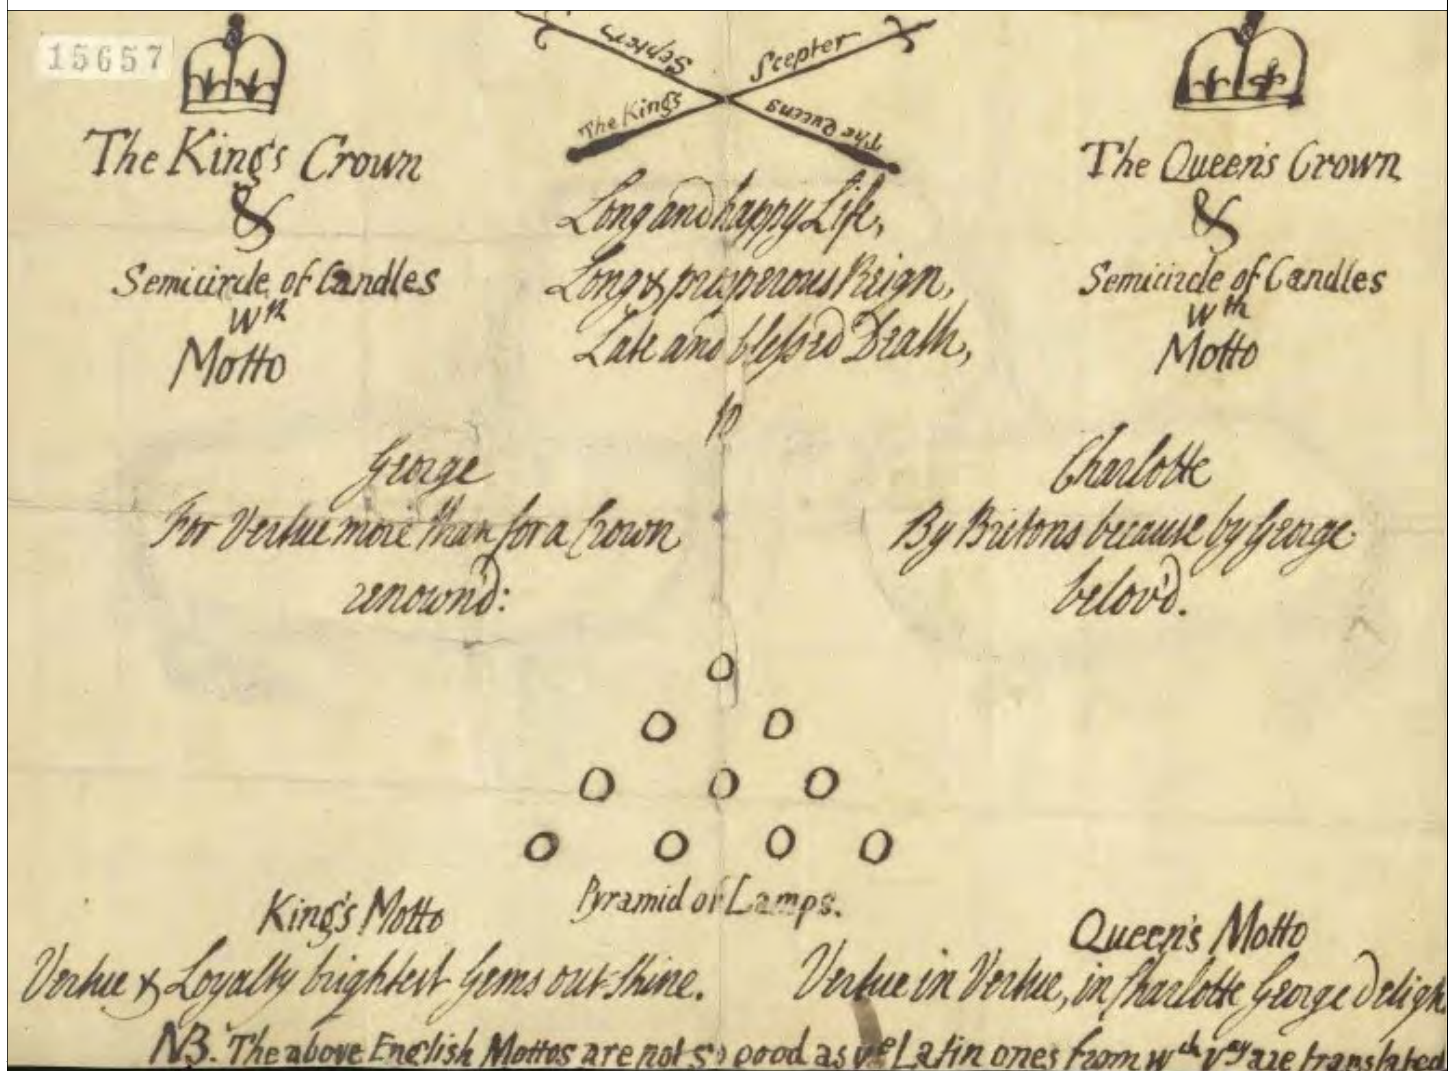 15657
The Kings Scepter
The Queens Scepter
The King's Crown
&
Semicircle of Candles
Wth
Motto
Long and happy Life,
Long & prosperous Reign,
Late and blessed Death,
to
The Queen's Crown
&
Semicircle of Candles
Wth
Motto
George
For Vertue more than for a Crown
renown'd:
Charlotte
By Britons because by George
belov'd.
Pyramid of Lamps.
King's Motto
Vertue & Loyalty brightest Gems out-shine.
Queen's Motto
Vertue in Vertue, in Charlotte George Deligh
NB. The above English Mottos are not so good as ye Latin ones from wch yey are translated